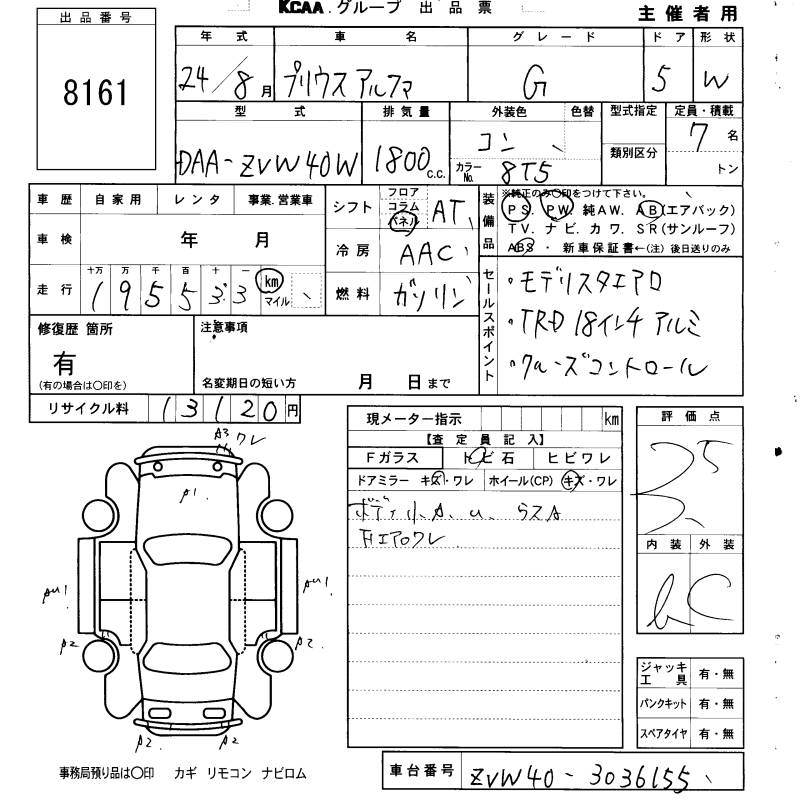 KCAA.グループ 出品票
主催者用
出品番号
8161
年式 車名 グレード ドア 形状
24/8月 プリウスアルファ G 5 W
型式 排気量 外装色 色替 型式指定 定員・積載
DAA-ZVW40W 1800c.c. コン 類別区分 7名
カラーNo. 8T5 トン
車歴 自家用 レンタ 事業.営業車
車検 年 月
走行 十万 万 千 百 十 一
195533 km マイル
シフト フロア コラム パネル AT
冷房 AAC
燃料 ガソリン
装備品 ※純正のみ○印をつけて下さい。
PS. PW. 純AW. AB(エアバック)
TV. ナビ. カワ. SR(サンルーフ)
ABS ・ 新車保証書←(注)後日送りのみ
セールスポイント
・モデリスタエアロ
・TRD 18インチアルミ
・クルーズコントロール
修復歴 箇所
有
(有の場合は○印を)
注意事項
名変期日の短い方 月 日まで
リサイクル料 13120円
現メーター指示 km
【査定員記入】
Fガラス トビ石 ヒビワレ
ドアミラー キズ・ワレ ホイール(CP) キズ・ワレ
ボディ小A. U. ラスA
Fエアロワレ
評価点
3.5
内装 外装
b C
ジャッキ工具 有・無
パンクキット 有・無
スペアタイヤ 有・無
A3 ワレ
A1.
AU1
AU1
A2
A2
A2.
A2
事務局預り品は○印 カギ リモコン ナビロム
車台番号 ZVW40-3036155